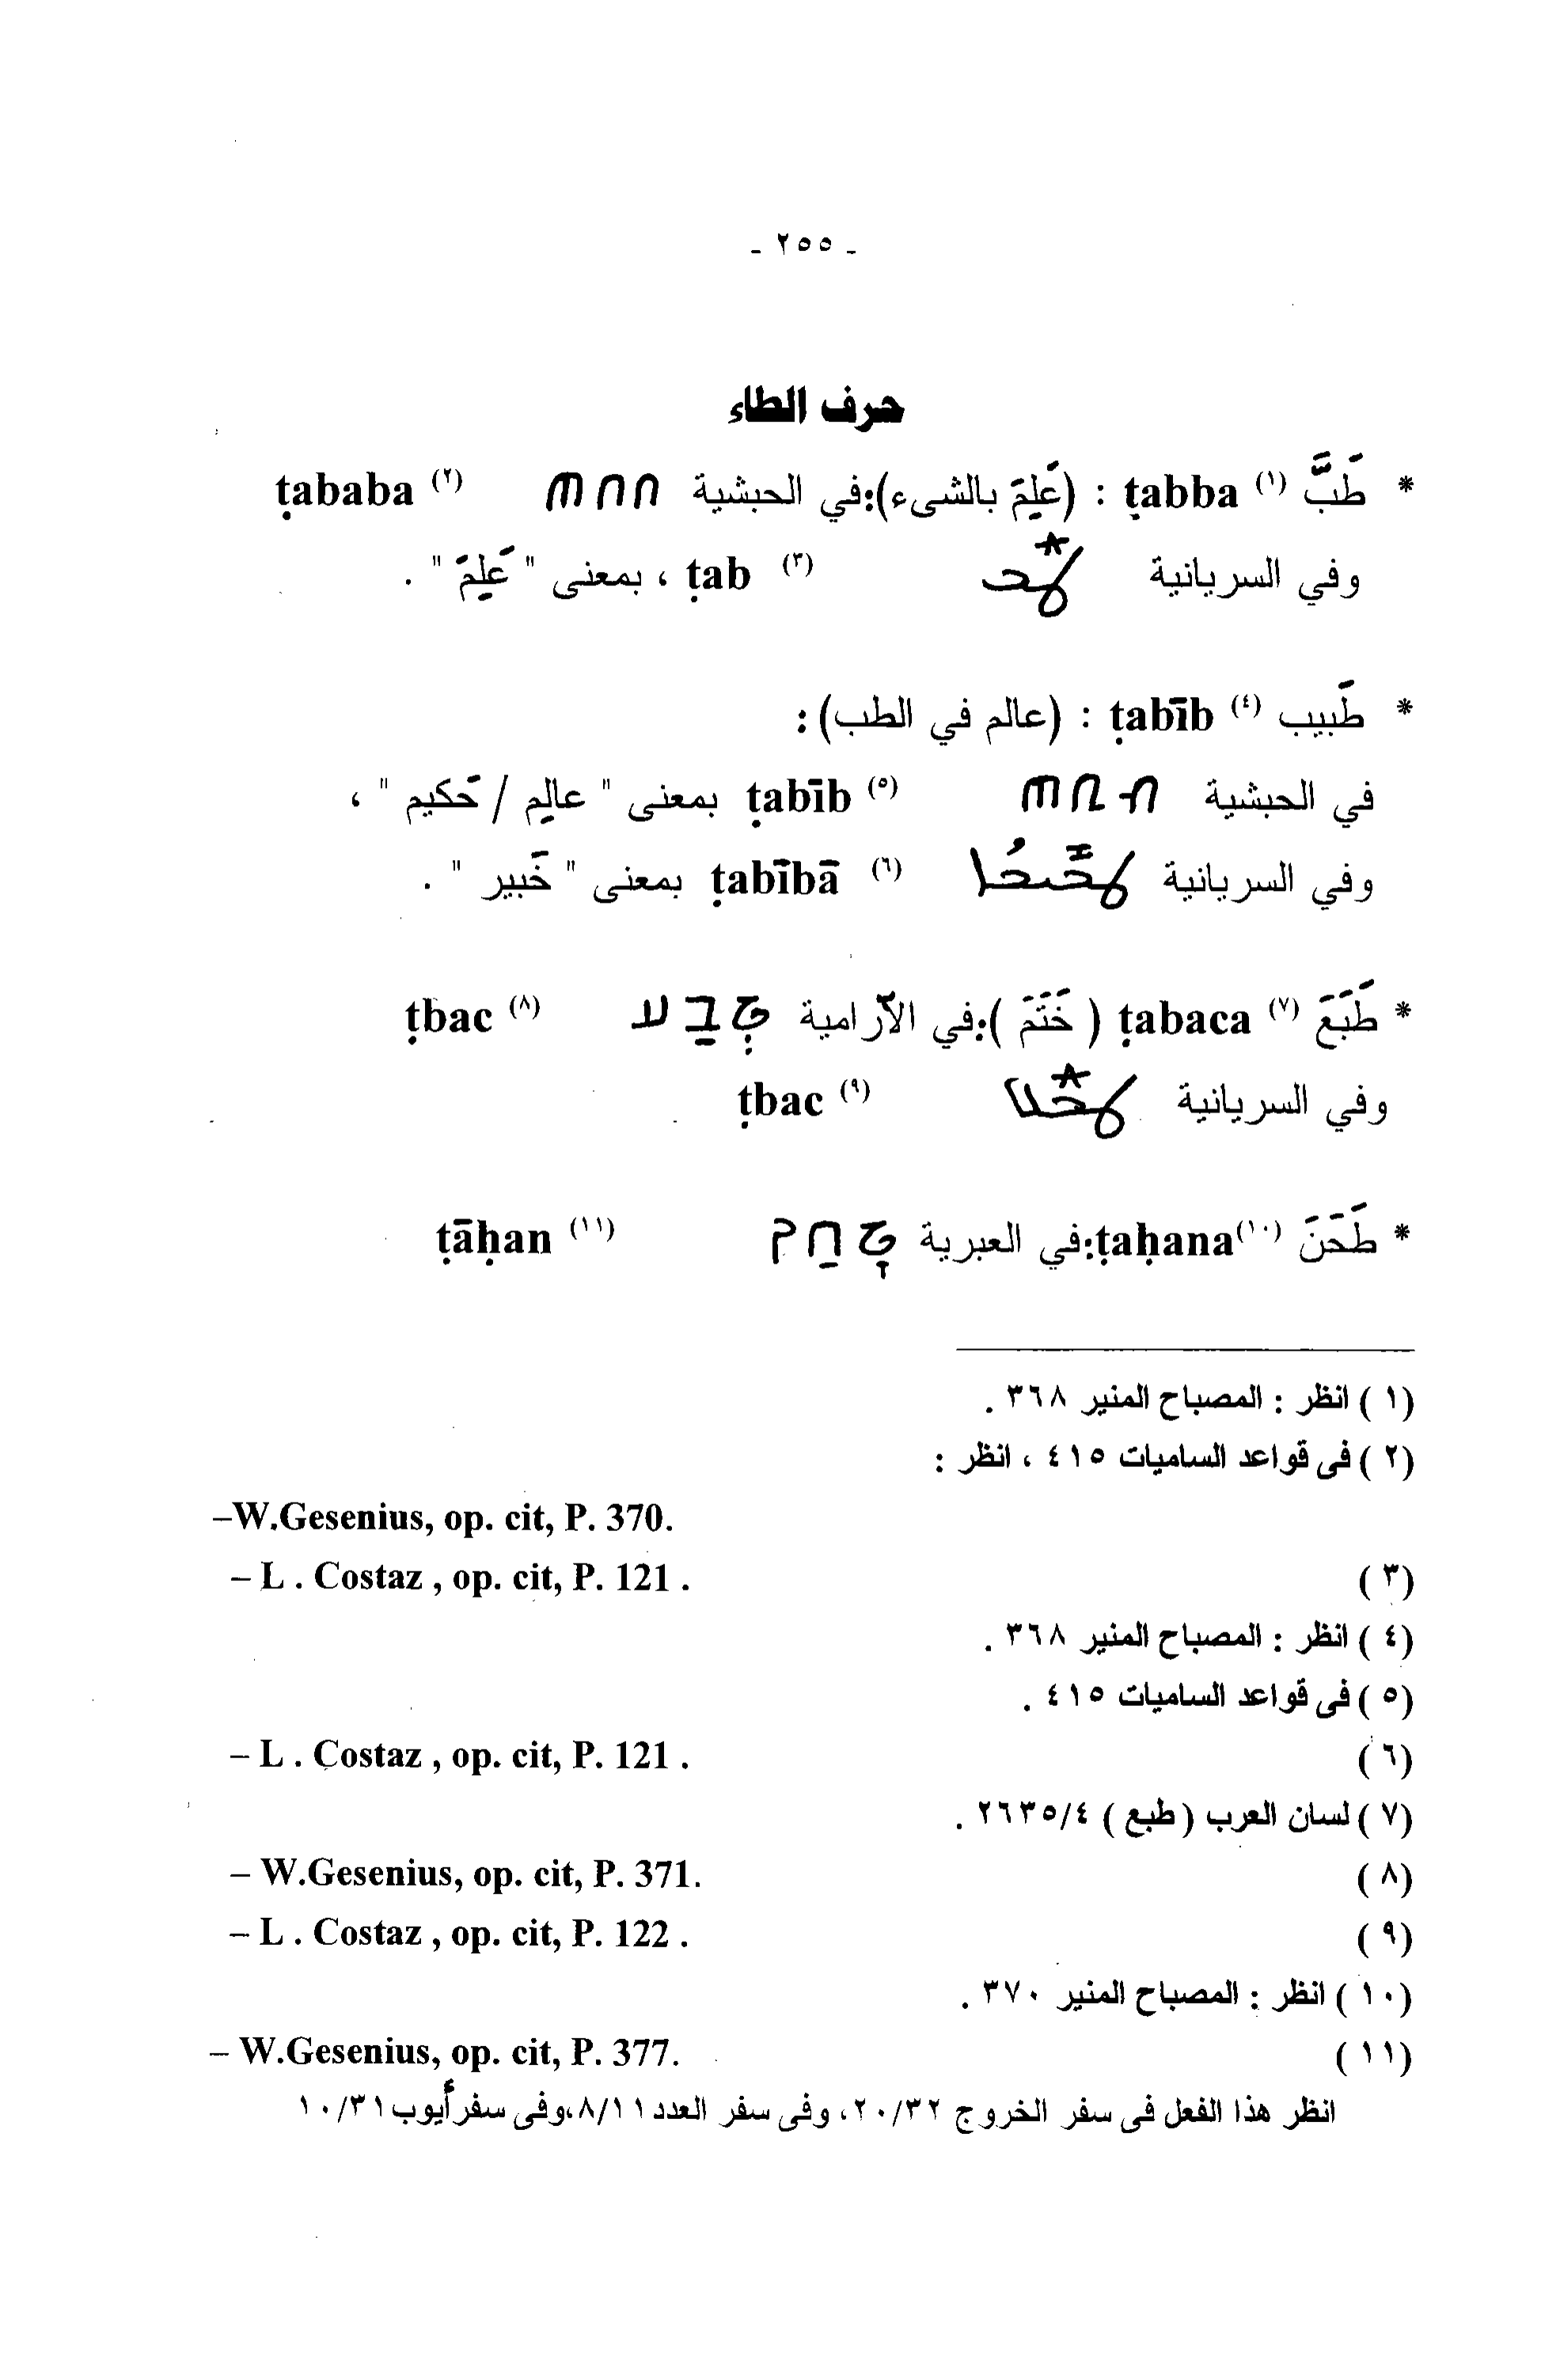 - ٢٥٥ -
حرف الطاء
* طَبَّ (١) ṭabba : (عَلِمَ بالشىء):في الحبشية ጠበበ (٢) ṭababa
وفي السريانية ܛܒ (٣) ṭab ، بمعنى " عَلِمَ " .
* طَبيب (٤) ṭabīb : (عالم في الطب) :
في الحبشية ጠቢብ (٥) ṭabīb بمعنى " عالِم / حَكيم " ،
وفي السريانية ܛܒܝܒܐ (٦) ṭabībā بمعنى " خَبير " .
* طَبَعَ (٧) ṭabaca ( خَتَمَ ):في الآرامية טְבַע (٨) ṭbac
وفي السريانية ܛܒܥ (٩) ṭbac
* طَحَنَ (١٠)ṭaḥana:في العبرية טָחַן (١١) ṭāḥan
(١ ) انظر : المصباح المنير ٣٦٨ .
(٢ ) فى قواعد الساميات ٤١٥ ، انظر :
–W.Gesenius, op. cit, P. 370.
(٣ ) – L . Costaz , op. cit, P. 121 .
(٤ ) انظر : المصباح المنير ٣٦٨ .
(٥ ) فى قواعد الساميات ٤١٥ .
(٦ ) – L . Costaz , op. cit, P. 121 .
(٧ ) لسان العرب (طبع ) ٢٦٣٥/٤ .
(٨ ) – W.Gesenius, op. cit, P. 371.
(٩ ) – L . Costaz , op. cit, P. 122 .
(١٠ ) انظر : المصباح المنير ٣٧٠ .
(١١ ) – W.Gesenius, op. cit, P. 377.
انظر هذا الفعل فى سفر الخروج ٢٠/٣٢، وفى سفر العدد ٨/١١،وفى سفر أيوب ١٠/٣١